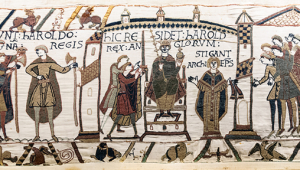 NT: HAROLDO
NA: REGIS
HIC RE SIDET: HAROLD
REX: AN GLORVM:
STIGANT
ARCHI EPS